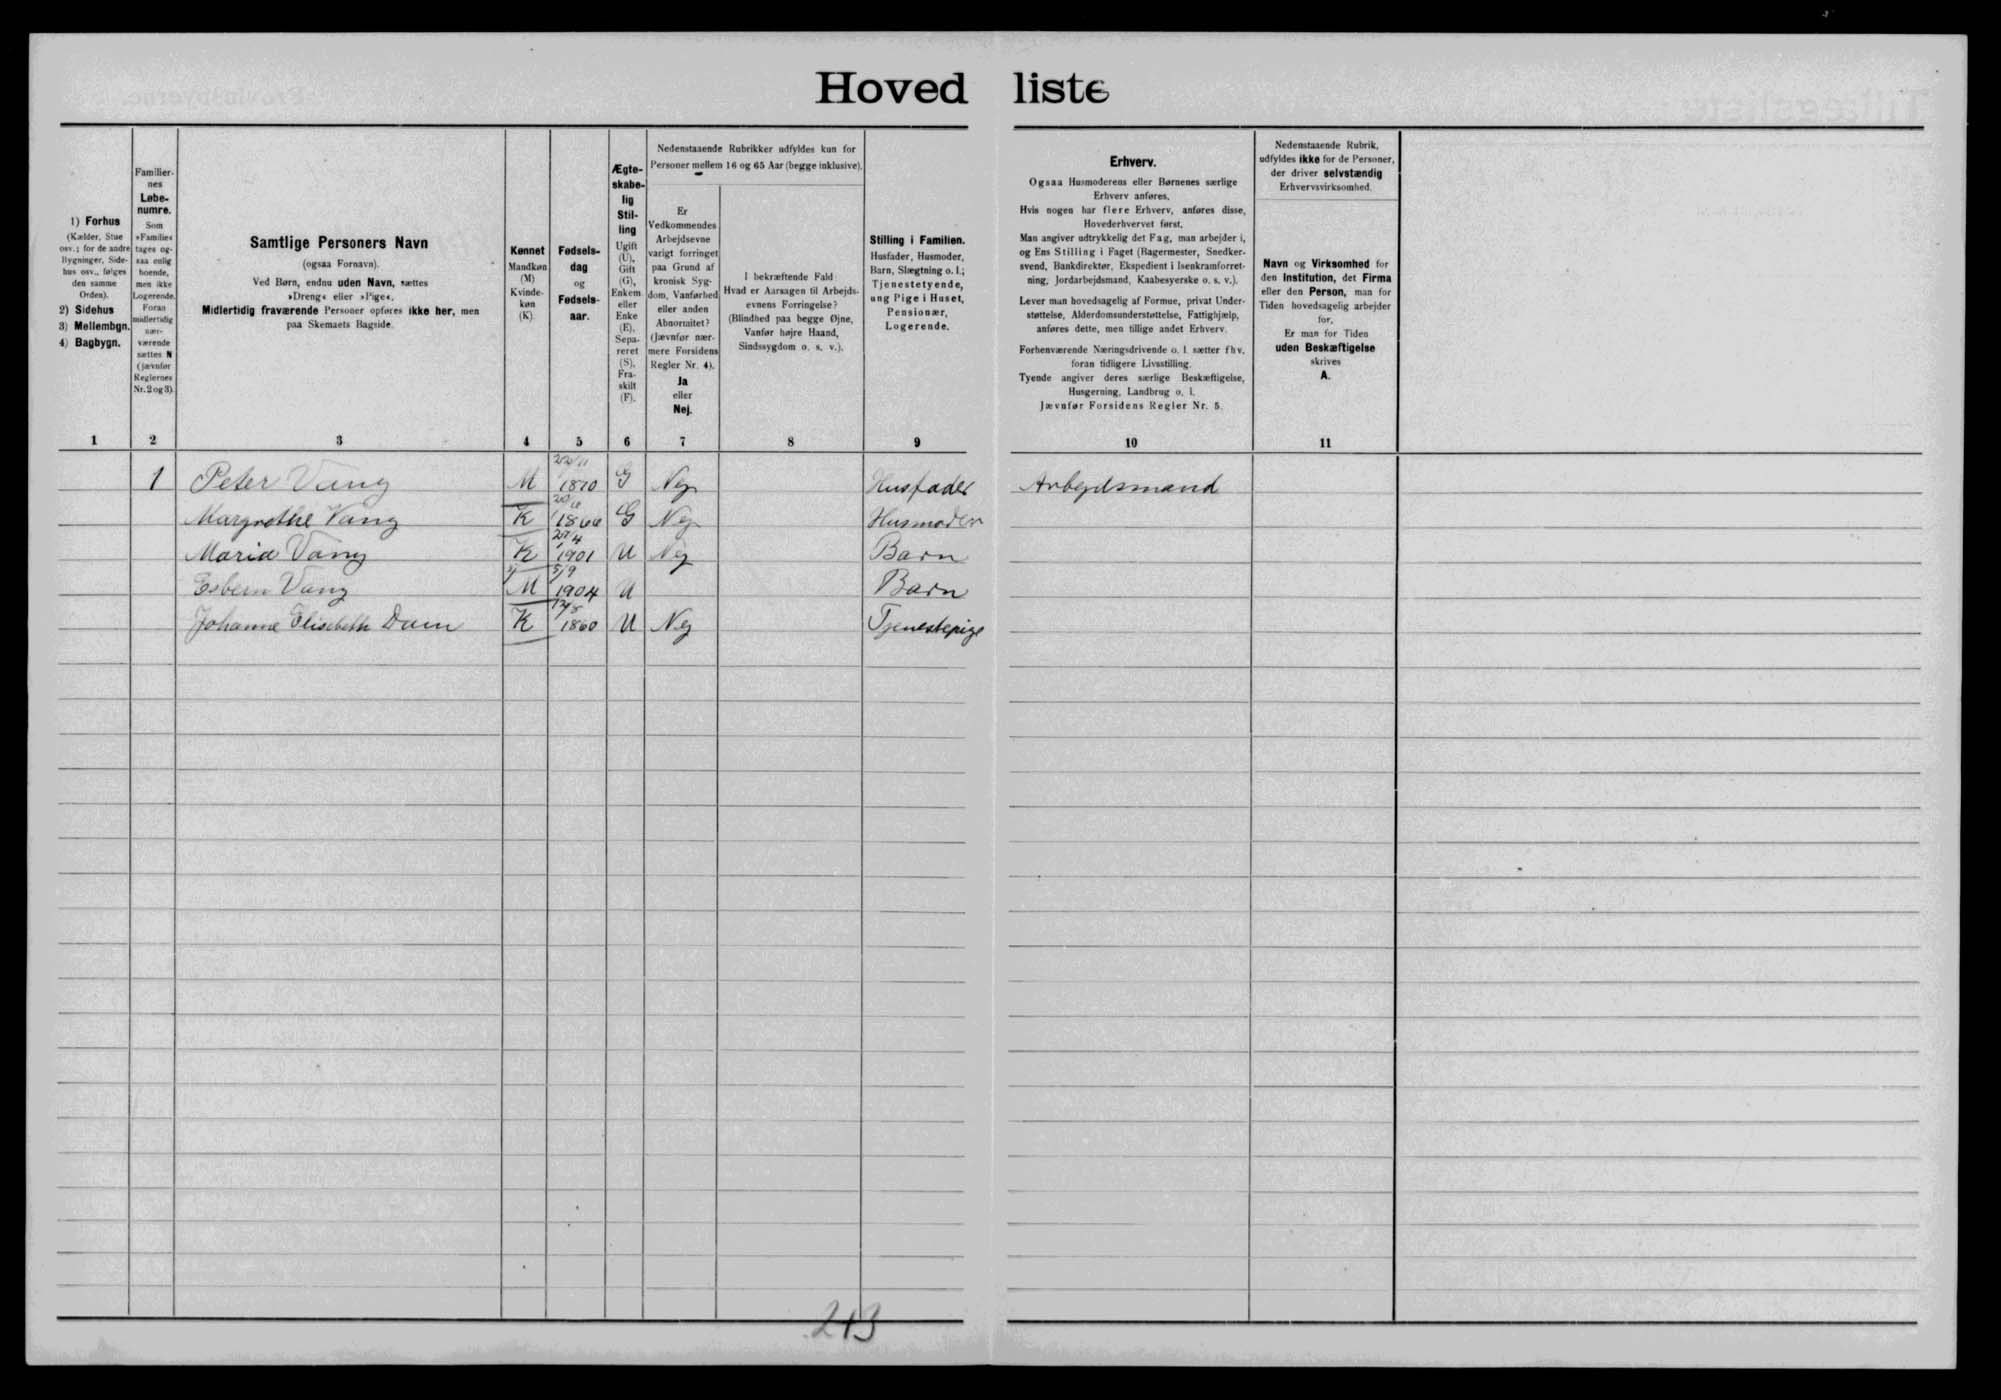 Hoved liste
1) Forhus
(Kælder, Stue
osv.; for de andre
Bygninger, Side-
hus osv., følges
den samme
Orden).
2) Sidehus
3) Mellembgn.
4) Bagbygn.
1
Familier-
nes
Løbe-
numre.
Som
»Familie«
tages og-
saa enlig
boende,
men ikke
Logerende.
Foran
midlertidig
nær-
værende
sættes N
(jævnfør
Reglernes
Nr. 2 og 3).
2
Samtlige Personers Navn
(ogsaa Fornavn).
Ved Børn, endnu uden Navn, sættes
»Dreng« eller »Pige«.
Midlertidig fraværende Personer opføres ikke her, men
paa Skemaets Bagside.
3
Kønnet
Mandkøn
(M)
Kvinde-
køn
(K).
4
Fødsels-
dag
og
Fødsels-
aar.
5
Ægte-
skabe-
lig
Stil-
ling
Ugift
(U),
Gift
(G),
Enkem.
eller
Enke
(E),
Sepa-
reret
(S),
Fra-
skilt
(F).
6
Nedenstaaende Rubrikker udfyldes kun for
Personer mellem 16 og 65 Aar (begge inklusive).
Er
Vedkommendes
Arbejdsevne
varigt forringet
paa Grund af
kronisk Syg-
dom, Vanførhed
eller anden
Abnormitet?
(Jævnfør nær-
mere Forsidens
Regler Nr. 4).
Ja
eller
Nej.
7
I bekræftende Fald
Hvad er Aarsagen til Arbejds-
evnens Forringelse?
(Blindhed paa begge Øjne,
Vanfør højre Haand,
Sindssygdom o. s. v.).
8
Stilling i Familien.
Husfader, Husmoder,
Barn, Slægtning o. l.;
Tjenestetyende,
ung Pige i Huset,
Pensionær,
Logerende.
9
Erhverv.
Ogsaa Husmoderens eller Børnenes særlige
Erhverv anføres.
Hvis nogen har flere Erhverv, anføres disse,
Hovederhvervet først.
Man angiver udtrykkelig det Fag, man arbejder i,
og Ens Stilling i Faget (Bagermester, Snedker-
svend, Bankdirektør, Ekspedient i Isenkramforret-
ning, Jordarbejdsmand, Kaabesyerske o. s. v.).
Lever man hovedsagelig af Formue, privat Under-
støttelse, Alderdomsunderstøttelse, Fattighjælp,
anføres dette, men tillige andet Erhverv.
Forhenværende Næringsdrivende o. l. sætter fhv.
foran tidligere Livsstilling.
Tyende angiver deres særlige Beskæftigelse,
Husgerning, Landbrug o. l.
Jævnfør Forsidens Regler Nr. 5.
10
Nedenstaaende Rubrik,
udfyldes ikke for de Personer,
der driver selvstændig
Erhvervsvirksomhed.
Navn og Virksomhed for
den Institution, det Firma
eller den Person, man for
Tiden hovedsagelig arbejder
for.
Er man for Tiden
uden Beskæftigelse
skrives
A.
11
1 Peter Vang M 22/11 1870 G Nej Husfader Arbejdsmand
Margrethe Vang K 20/6 1866 G Nej Husmoder
Maria Vang K 27/4 1901 U Nej Barn
Esbern Vang M 5/9 1904 U Barn
Johanne Elisebeth Dam K 12/8 1860 U Nej Tjenestepige
213